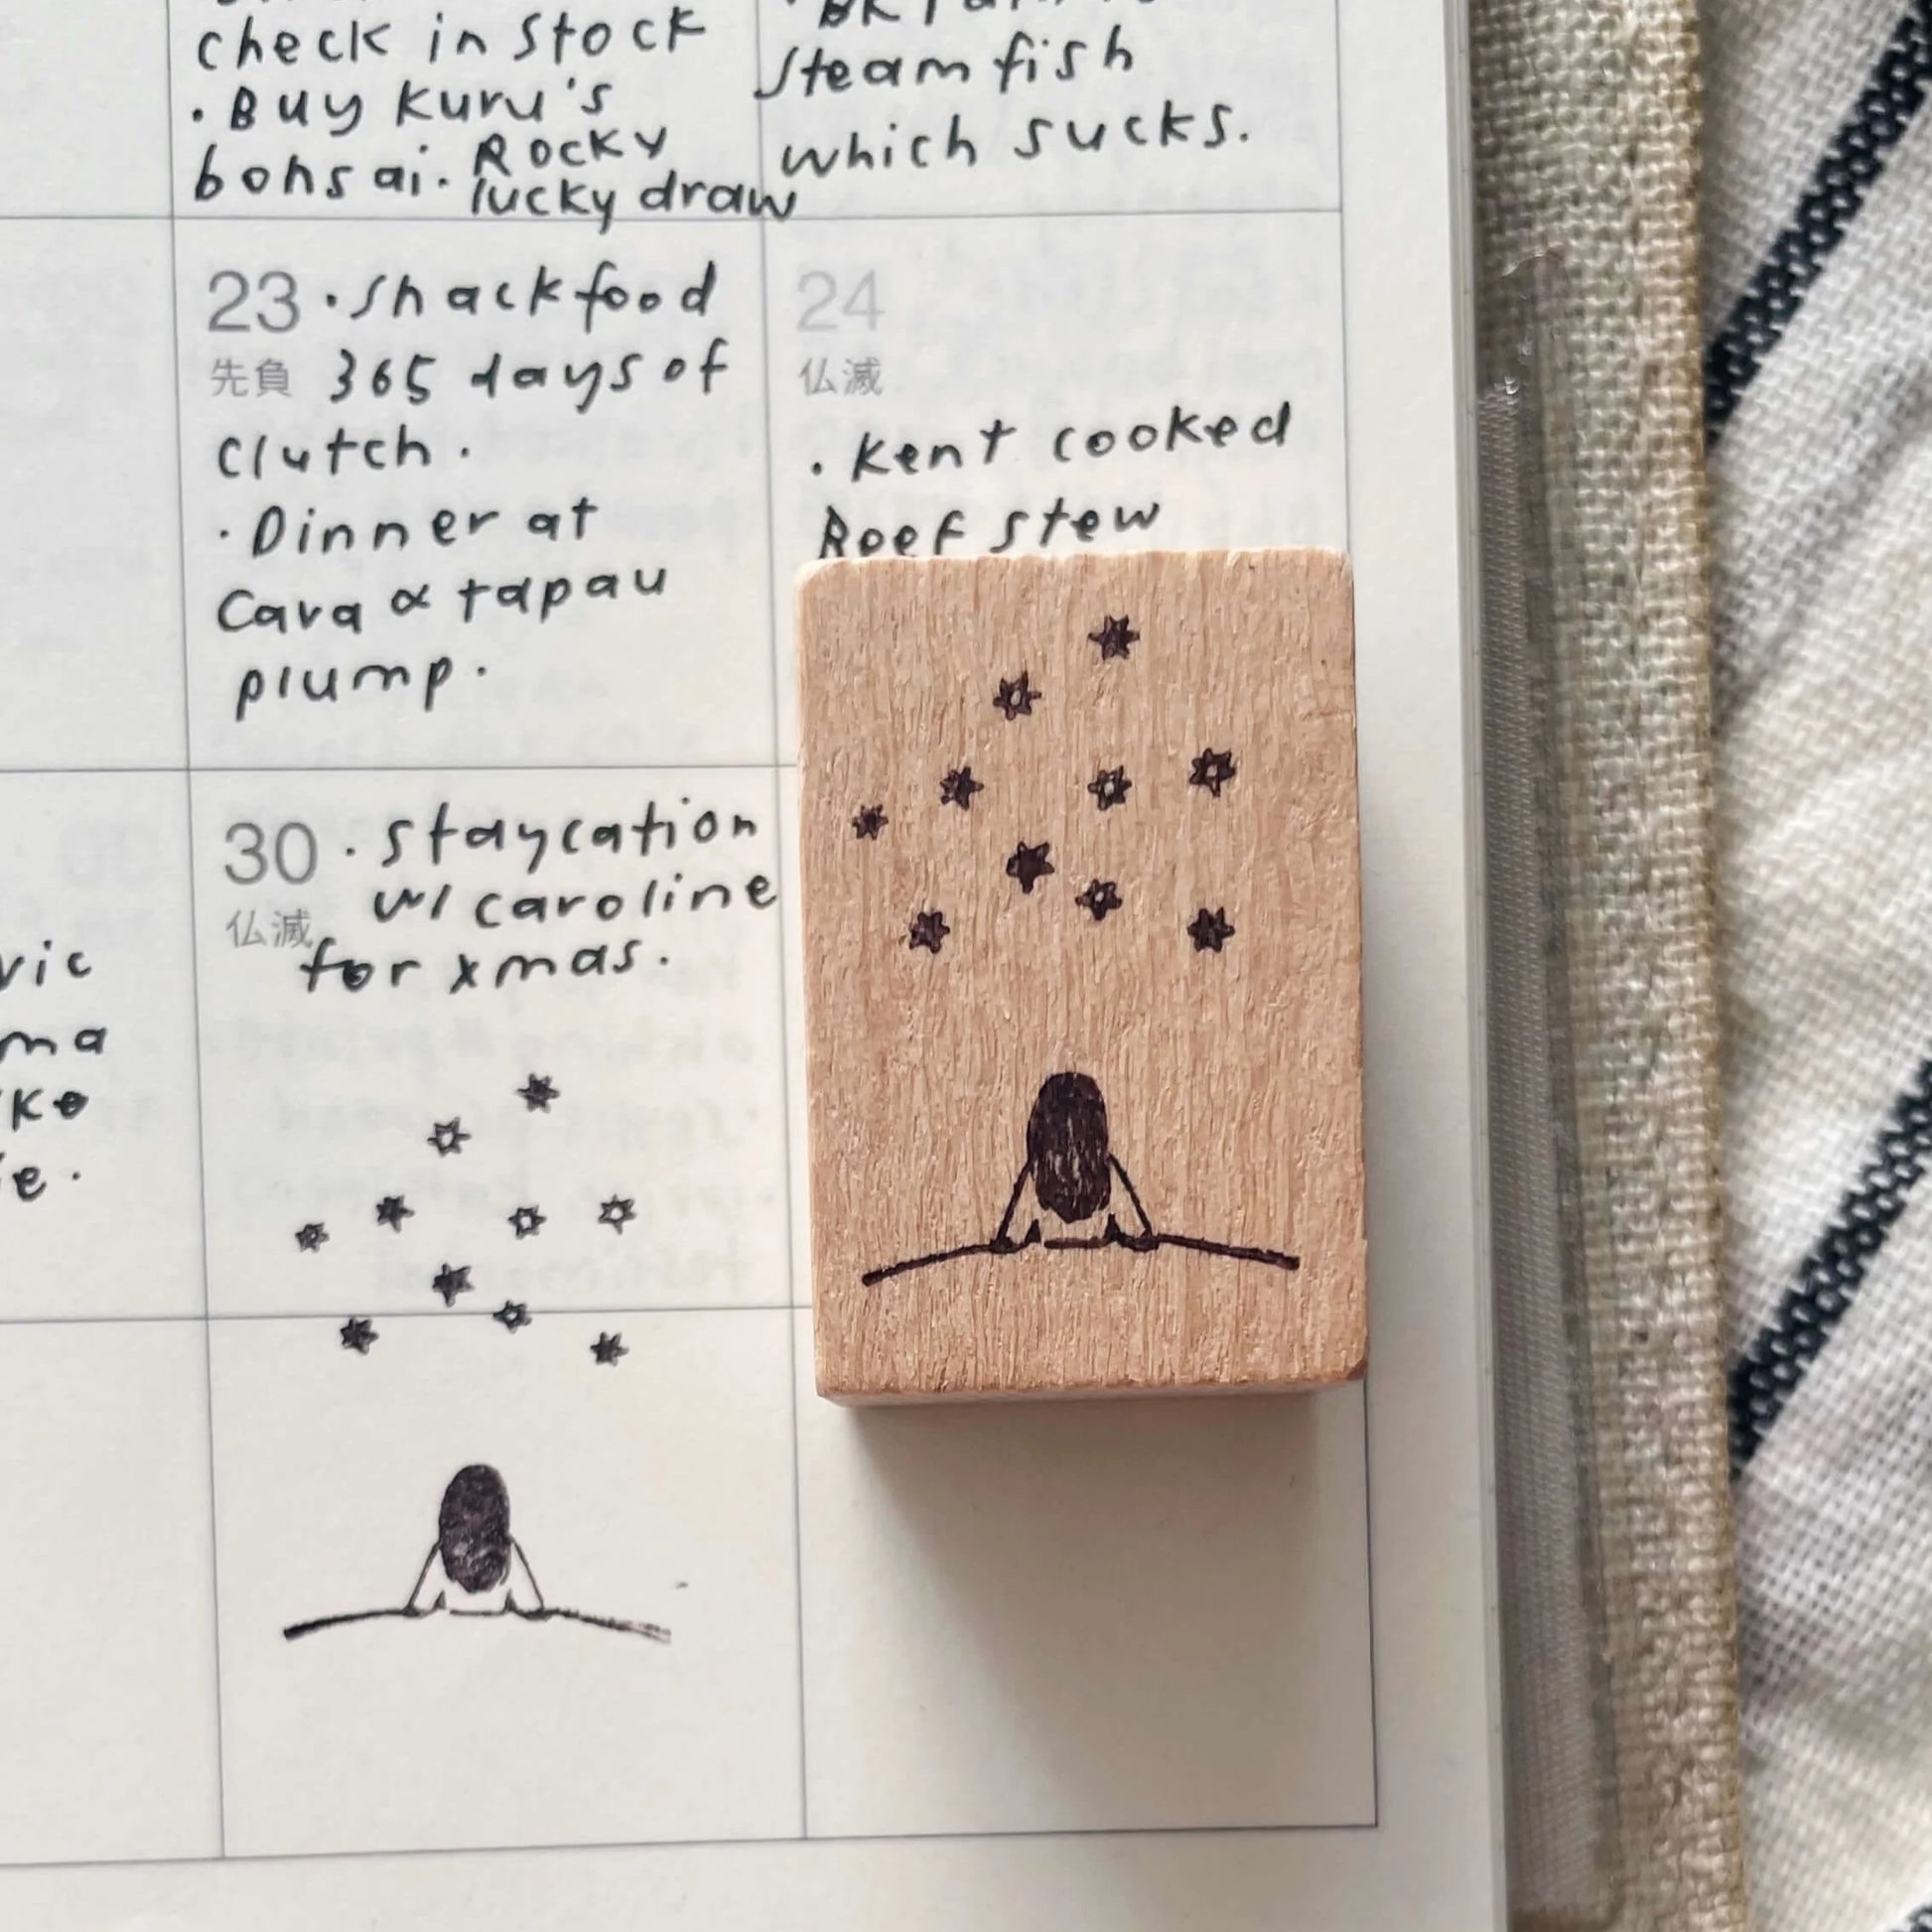 check in stock
· Buy Kuru's
bonsai. Rocky
lucky draw
steam fish
which sucks.
23 · shack food
先負 365 days of
clutch.
· Dinner at
Cara & tapau
plump.
24
仏滅
· Kent cooked
Beef stew
30 · staycation
仏滅 w/ caroline
for xmas.